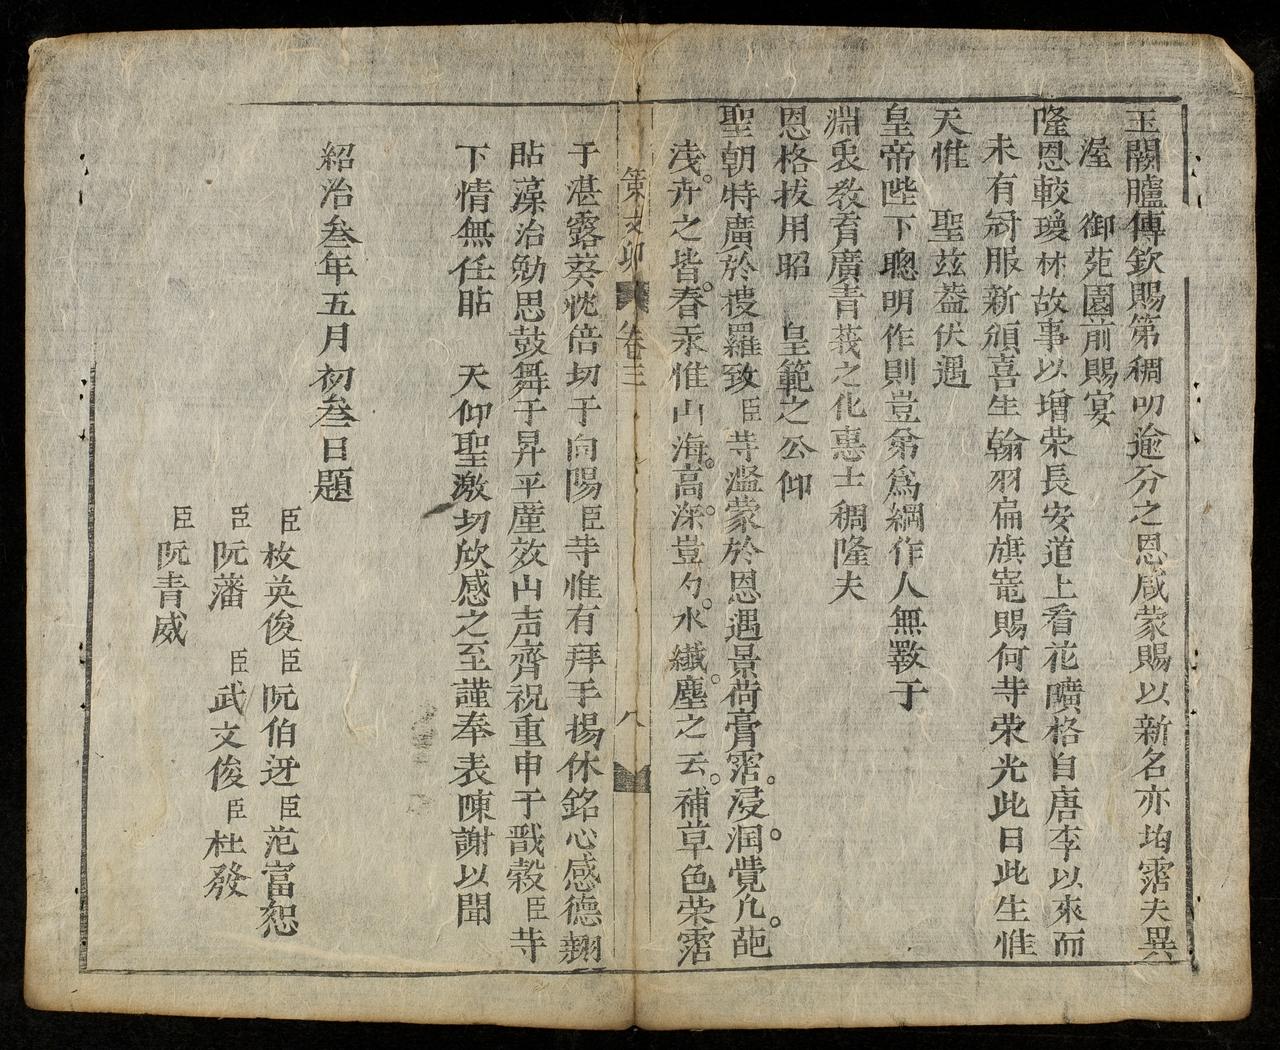 玉關臚傳欽賜第稠叨逾分之恩咸蒙賜以新名亦均霑夫異
渥　御苑園前賜宴
隆恩較瓊林故事以增荣長安道上看花曠格自唐李以來而
未有冠服新頒喜生翰羽扁旗寵賜何等荣光此日此生惟
天惟　聖茲蓋伏遇
皇帝陛下聰明作則豈弟爲綱作人無斁于
淵衷敎育廣青莪之化惠士稠隆夫
恩格拔用昭　皇範之公仰
聖朝特廣於搜羅致臣等濫蒙於恩遇景荷膏霑浸润覺凡葩
浅卉之皆春汞惟山海高深豈勺水纖塵之云補草色荣霑
策文卯　卷三　八
于湛露葵忱倍切于向陽臣等惟有拜手揚休銘心感德翹
貼藻治勉思鼓舞于昇平產效山声齊祝重申于戩榖臣等
下情無任貼　天仰聖激切欣感之至謹奉表陳謝以聞
紹治叁年五月初叁日題
臣枚英俊臣阮伯迓臣范富恕
臣阮藩　臣武文俊臣杜發
臣阮青威